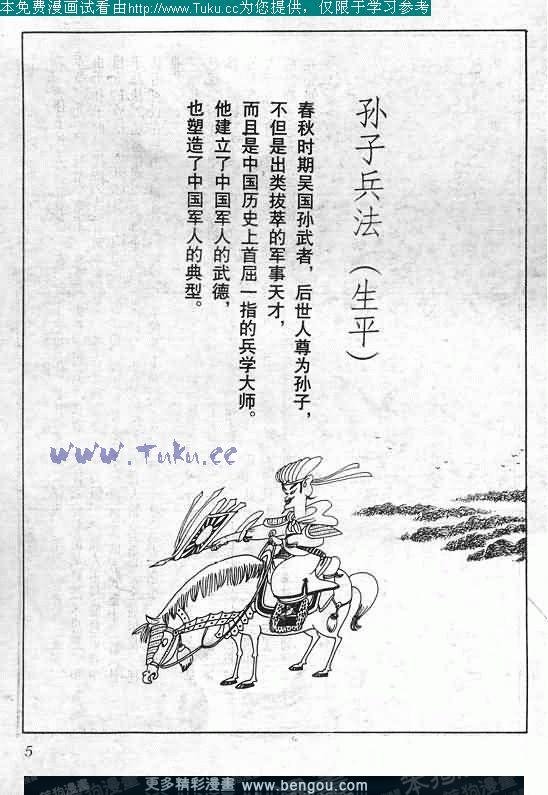 本免费漫画试看由http://www.Tuku.cc为您提供，仅限于学习参考
孙子兵法（生平）
春秋时期吴国孙武者，后世人尊为孙子，
不但是出类拔萃的军事天才，
而且是中国历史上首屈一指的兵学大师。
他建立了中国军人的武德，
也塑造了中国军人的典型。
www.Tuku.cc
5
更多精彩漫畫 www.bengou.com